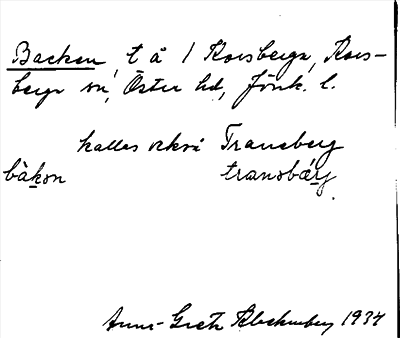 Backen, t å 1 Korsberga, Kors-
berga sn, Öster hd, Jönk. l.
kallas också Transberg
bàkən transbárj
Anna-Greta Blackenberg 1934